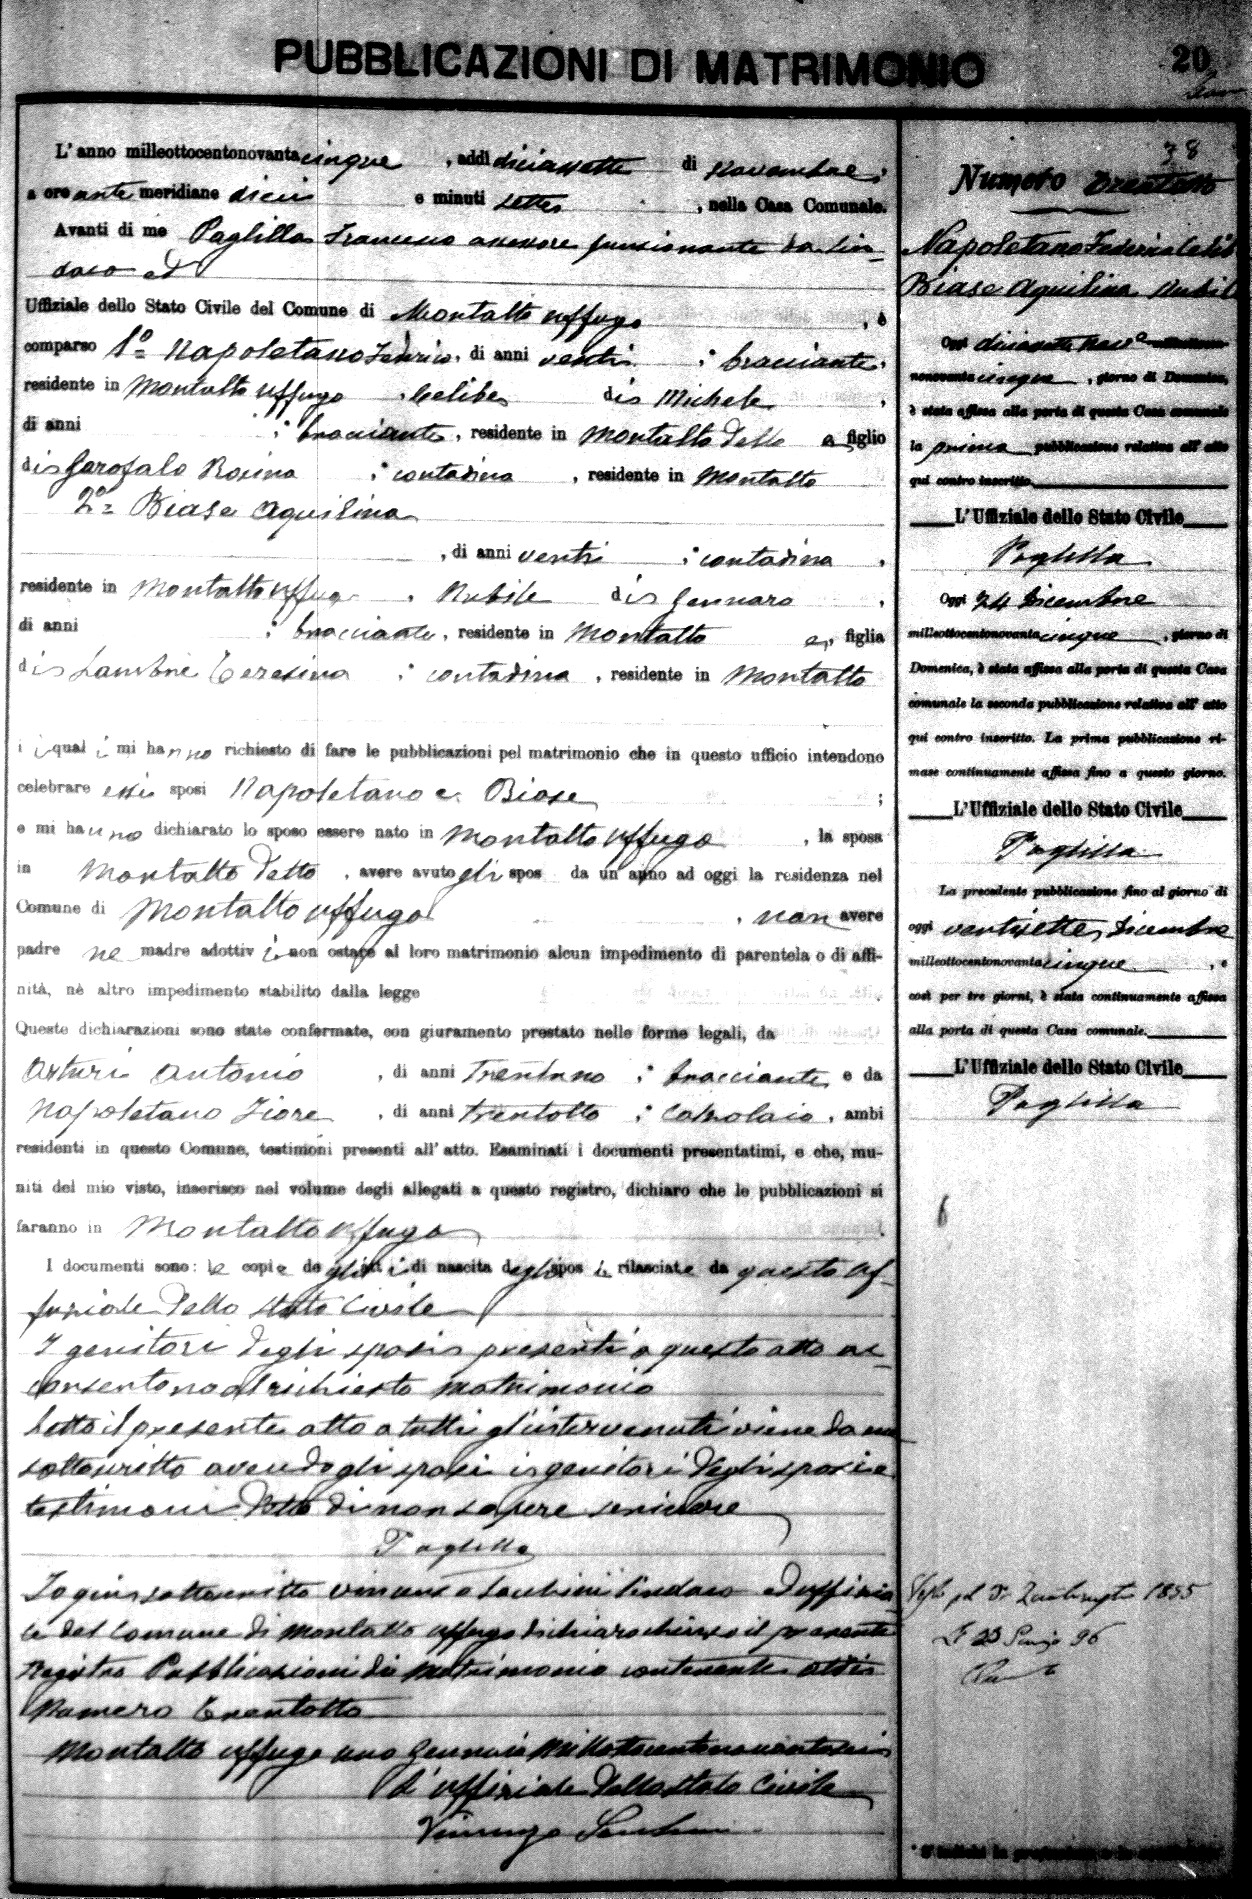 PUBBLICAZIONI DI MATRIMONIO
20
L' anno milleottocentonovanta cinque , addì diciassette di novembre ;
a ore ante meridiane dieci e minuti sette , nella Casa Comunale.
Avanti di me Paglilla Francesco assessore funzionante da Sin-
daco ed
Uffiziale dello Stato Civile del Comune di Montalto uffugo , è
comparso 1º= Napoletano Federico, di anni venti ; bracciante,
residente in Montalto uffugo , Celibe, di Michele ,
di anni ; bracciante, residente in Montalto detto e figlio
di Garofalo Rosina ; contadina , residente in Montalto
2º= Biase Aquilina
, di anni venti ; contadina ,
residente in Montalto uffugo . Nubile di Gennaro ,
di anni ; bracciante, residente in Montalto e, figlia
di Teresina ; contadina , residente in Montalto
i i qual i mi hanno richiesto di fare le pubblicazioni pel matrimonio che in questo ufficio intendono
celebrare essi sposi Napoletano e Biase ;
e mi hanno dichiarato lo sposo essere nato in Montalto uffugo , la sposa
in Montalto detto , avere avuto gli spos da un anno ad oggi la residenza nel
Comune di Montalto uffugo , non avere
padre ne madre adottiv i non ostare al loro matrimonio alcun impedimento di parentela o di affi-
nità, nè altro impedimento stabilito dalla legge
Queste dichiarazioni sono state confermate, con giuramento prestato nelle forme legali, da
Arturi Antonio , di anni trentuno ; bracciante e da
Napoletano Fiore , di anni trentotto ; Calzolaio , ambi
residenti in questo Comune, testimoni presenti all' atto. Esaminati i documenti presentatimi, e che, mu-
niti del mio visto, inserisco nel volume degli allegati a questo registro, dichiaro che le pubblicazioni si
faranno in Montalto uffugo
I documenti sono: le copie degli atti di nascita degli sposi rilasciate da questo uf-
fiziale dello stato Civile
I genitori degli sposi presenti a questo atto ac-
consentono al richiesto matrimonio
Letto il presente atto a tutti gl'intervenuti viene da me
sottoscritto avendo gli sposi i genitori degli sposi e
testimoni detto di non sapere scrivere
Paglilla
sottoscritto Vincenzo Sindaco ed uffizia
le del Comune di Montalto uffugo dichiaro chiuso il presente
Registro Pubblicazioni di Matrimonio contenente atti
Numero trentotto
Montalto uffugo uno Gennaio Millottocentonovantasei
L'uffiziale dello stato Civile
Vincenzo
38
Numero trentotto
Napoletano Federico Celib
Biase Aquilina Nubil
Oggi diciassette Nove
nonovanta cinque , giorno di Domenica,
è stata affissa alla porta di questa Casa comunale
la prima pubblicazione relativa all' atto
qui contro inscritto.
L'Uffiziale dello Stato Civile
Paglilla
Oggi 24 Dicembre
milleottocentonovanta cinque , giorno di
Domenica, è stata affissa alla porta di questa Casa
comunale la seconda pubblicazione relativa all' atto
qui contro inscritto. La prima pubblicazione ri-
mase continuamente affissa fino a questo giorno.
L'Uffiziale dello Stato Civile
Paglilla
La precedente pubblicazione fino al giorno di
oggi ventisette Dicembre
milleottocentonovanta cinque , e
così per tre giorni, è stata continuamente affissa
alla porta di questa Casa comunale.
L'Uffiziale dello Stato Civile
Paglilla